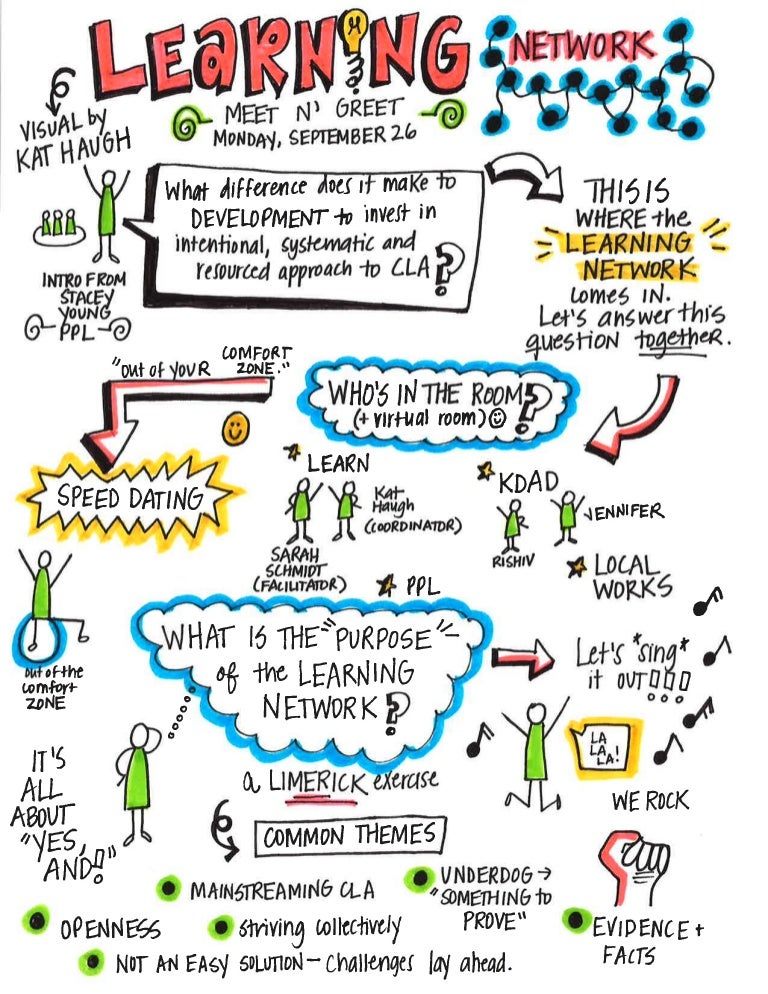 LEARNING
NETWORK
MEET N' GREET
MONDAY, SEPTEMBER 26
VISUAL by
KAT HAUGH
What difference does it make to
DEVELOPMENT to invest in
intentional, systematic and
resourced approach to CLA?
INTRO FROM
STACEY
YOUNG
PPL
THIS IS
WHERE the
LEARNING
NETWORK
comes IN.
Let's answer this
question together.
"out of your COMFORT
ZONE."
WHO'S IN THE ROOM?
(+ virtual room) ☺
SPEED DATING
LEARN
Kat
Haugh
(COORDINATOR)
SARAH
SCHMIDT
(FACILITATOR)
KDAD
RISHIV
JENNIFER
LOCAL
WORKS
PPL
out of the
comfort
ZONE
WHAT IS THE "PURPOSE"
of the LEARNING
NETWORK?
Let's *sing*
it OUT!!!
LA
LA,
LA!
WE ROCK
IT'S
ALL
ABOUT
"YES,
AND!"
a LIMERICK exercise
COMMON THEMES
MAINSTREAMING CLA
UNDERDOG →
"SOMETHING to
PROVE"
OPENNESS
striving collectively
EVIDENCE +
FACTS
NOT AN EASY SOLUTION - challenges lay ahead.